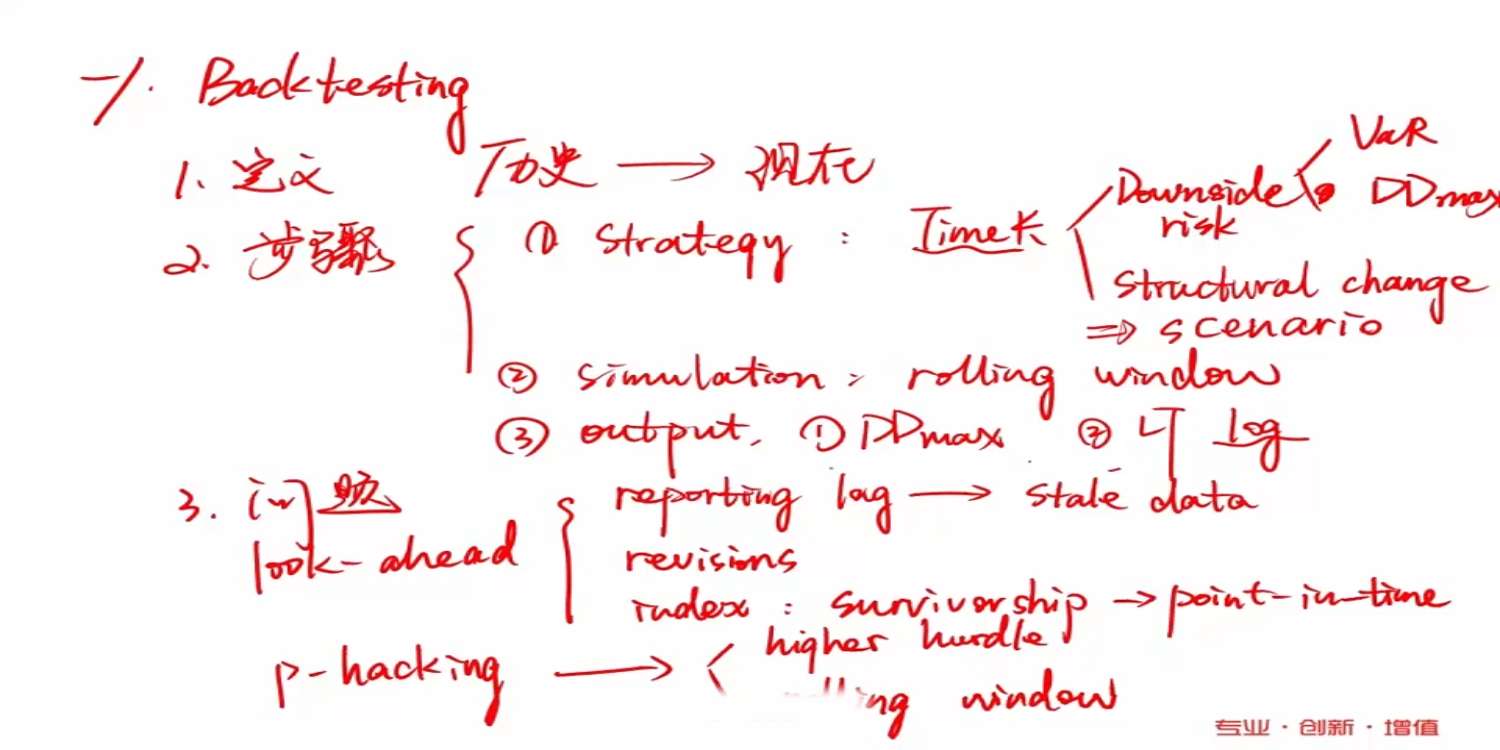 一、Backtesting
1、定义 历史 → 现在
2. 步骤 ① Strategy : Time长 Downside risk VaR DDmax
Structural change
⇒ scenario
② simulation: rolling window
③ output. ① DDmax ② log
3. 问题
look-ahead reporting lag → stale data
revisions
index: survivorship → point-in-time
p-hacking → higher hurdle
rolling window
专业·创新·增值